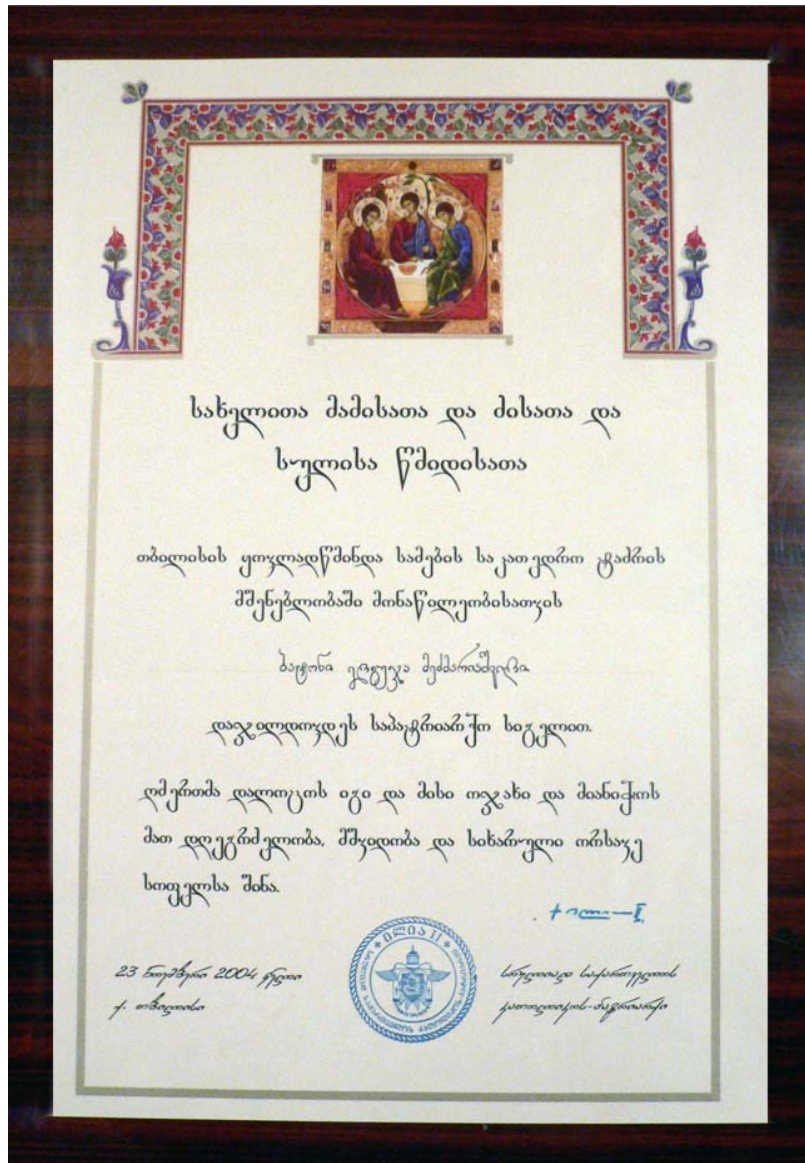 სახელითა მამისათა და ძისათა და
სულისა წმიდისათა
თბილისის ყოვლადწმინდა სამების საკათედრო ტაძრის
მშენებლობაში მონაწილეობისათვის
ბატონი ელგუჯა მეძმარიაშვილი
დაჯილდოვდეს საპატრიარქო სიგელით.
ღმერთმა დალოცოს იგი და მისი ოჯახი და მიანიჭოს
მათ დღეგრძელობა, მშვიდობა და სიხარული ორსავე
სოფელსა შინა.
ილია II
23 ნოემბერი 2004 წელი
ქ. თბილისი
სრულიად საქართველოს
კათოლიკოს-პატრიარქი